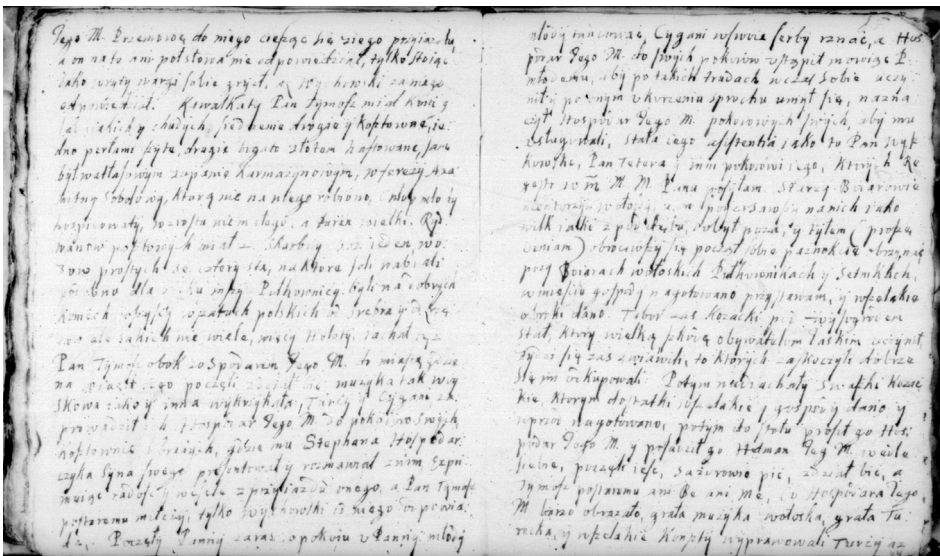 Jego M. Przemowę do niego ciesząc się z jego przyiazdu,
a on na to ani pół słowa nie odpowiedział, tylko stoiąc
iako wryty wargi sobie gryzł, a Wychowski za niego
odpowiedział. Kawalkaty Pan Tymosz miał koni
iakich y chudych, siedzenie drogie y kosztowne, ie
dno perłami szyte, drugie bogato złotem haftowane, sam
był w atłasowym żupanie karmazynowym, w ferezyi Axa
mitney Sobolowey, ktorą nie na niego robiono, młody
hospodowaty, wzrostu niemałego, a twarz wielka.
miał z Skarbnym ieden wo
zow prostych ze cztery sta, na ktore soli nabrali
dla Pułkownicy byli na dobrych
koniach wszyscy w szatach polskich od srebra y
ale takich nie wiele, więcy Hołoty, iachał
Pan Tymosz obok z Hospodarem Jego M. do miasta,
na poczęli działa bić, muzyka tak woy
skowa iako y inna wykrzykała, Turcy y Cygani za
prowadził Hospodar Jego M. do pokoiow swoych
kosztownie ubranych, gdzie mu Stephana Hospodar
czyka Syna swego prezentował y rozmawiał z nim, expri
muiąc radość y wesele z przyiazdu onego, a Pan Tymosz
postaremu milczy, tylko Wychowski za niego odpowia
da. Poczęły Panny zaraz w pokoiu u Panny młody
młody tancować, Cygani w swoie serby rznąć, a Hos
podar Jego M. do swych pokoiow ustąpił mowiąc P.
młodemu, aby po takich trudach wczas sobie uczy
nił, y po onym ukurzeniu y prochu umył się, nazna
czył Hospodar Jego M. pokoiowych swoych, aby mu
usługiwali, stała iego assistentia iako to Pan Wyh
howski, Pan Tetera y inni pokoiowi iego, ktorych Re
gestr W. M. M. Pana posyłam. Starzy Boiarowie
weszli, a on spoyzrzawszy na nich iako
wilk iaki z pode łba, dobył noża, y tyłem (prosze
) obrociwszy się począł sobie paznokcie obrzynać
przy Boiarach wołoskich Pułkownikach y Setnikach,
w mieście gospody nagotowano przystawam, y wszelakie
obroki dano. Tabor zas Kozacki pod
stał, ktory wielką szkodę obywatelom tamtym uczynił,
Żydzi się zas zwiawili, do ktorych zaskoczyli dobrze
się im okupowali. Potym nadiachały Swaszki Kozac
kie, ktorym dostatki wszelakie y gospody dano y
wprzod nagotowano, potym do stołu prosił go Hos
podar Jego M. y posadził go Hetman Jego M. wedle
siebie, poczęli ieść, za zdrowie pić, z dział bić, a
Tymosz postaremu ani Be ani Me, co Hospodara Jego
M. barzo obrażało, grała muzyka wołoska, grała Tu
recka, y wszelakie Konszty wyprawowali Turcy az